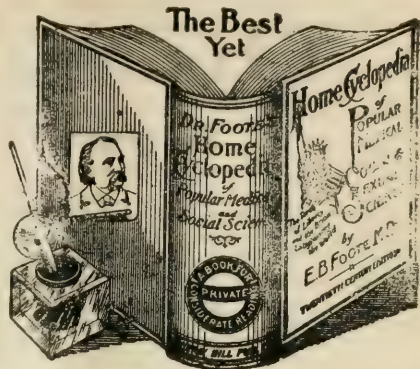 The Best
Yet
DR. FOOTE'S
Home
Cyclopedia
of
Popular Medical
and
Social Science
A BOOK FOR
PRIVATE
CONSIDERATE READING
HILL PUB
Home Cyclopedia
of
POPULAR
MEDICAL
SOCIAL &
SEXUAL
SCIENCE
by
E.B. FOOTE M.D.
TWENTIETH CENTURY EDITION